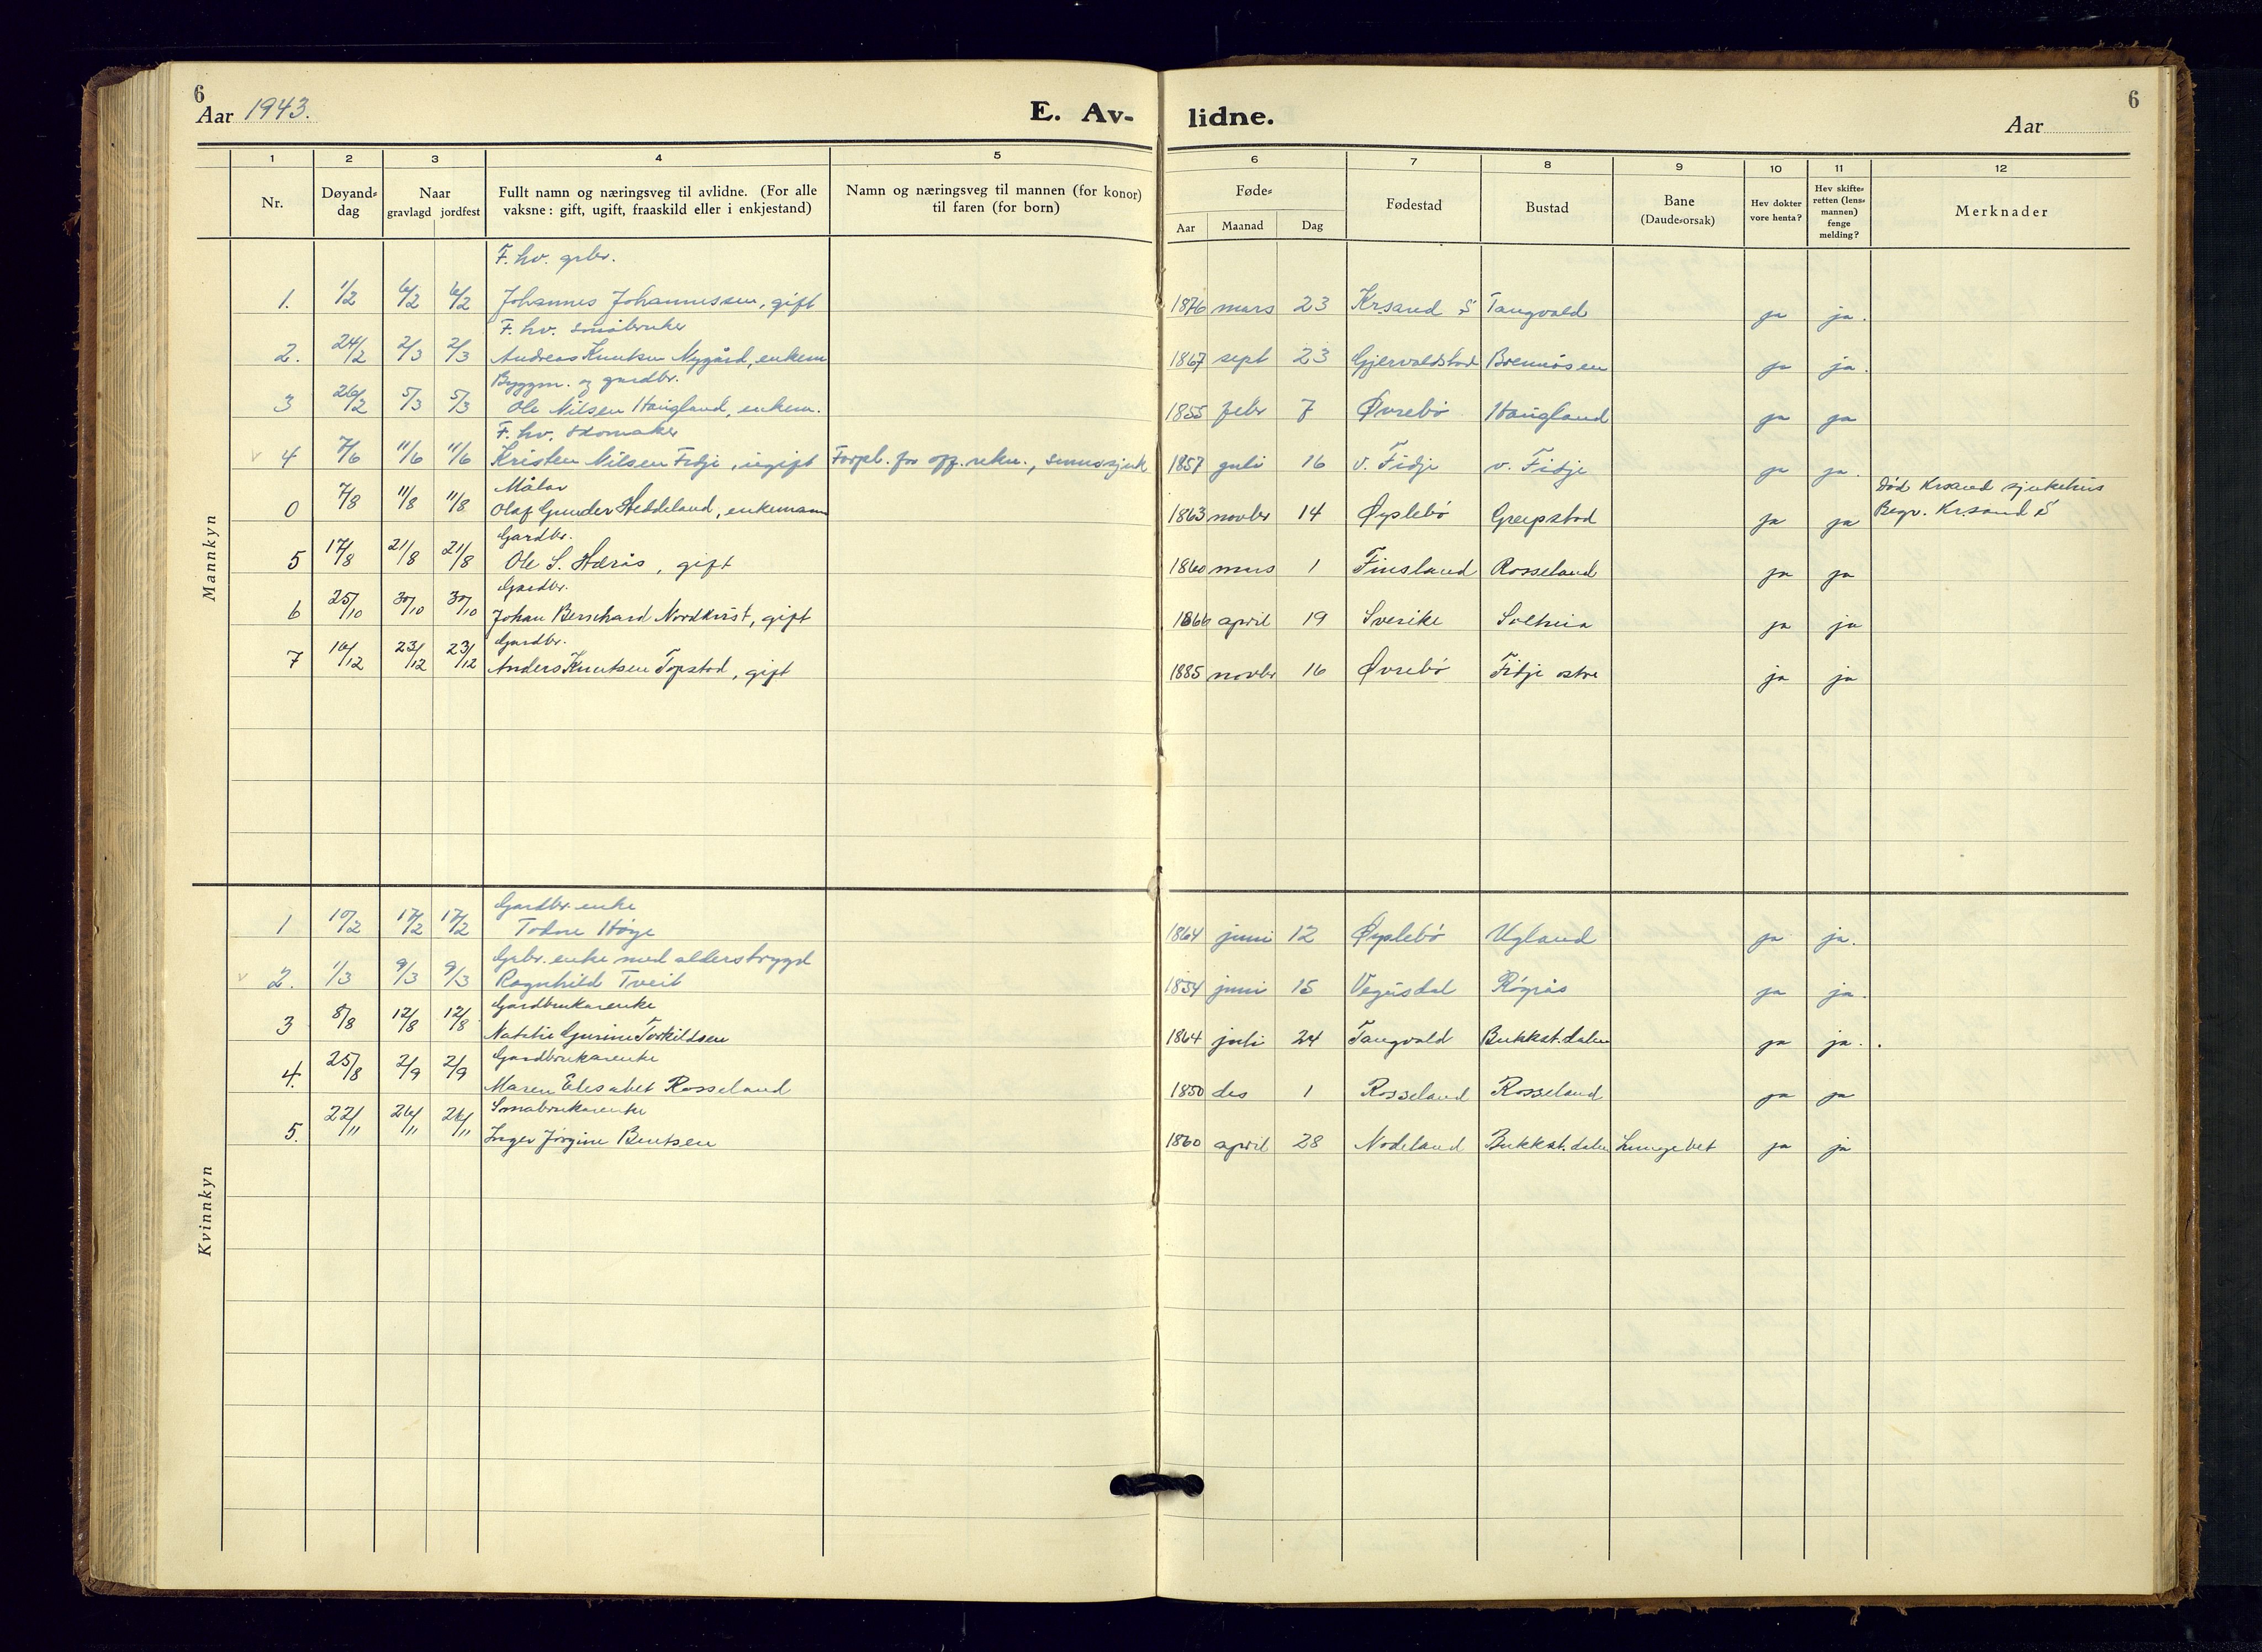 6
Aar 1943.
E. Av-
lidne.
6
Aar
1 2 3 4 5 6 7 8 9 10 11 12
Nr.
Døyand-
dag
Naar
gravlagd jordfest
Fullt namn og næringsveg til avlidne. (For alle
vaksne: gift, ugift, fraaskild eller i enkjestand)
Namn og næringsveg til mannen (for konor)
til faren (for born)
Føde-
Aar Maanad Dag
Fødestad
Bustad
Bane
(Daude-orsak)
Hev dokter
vore henta?
Hev skifte-
retten (lens-
mannen)
fenge
melding?
Merknader
Mannkyn
F. hv. grbr.
1. 1/2 6/2 6/2 Johannes Johannessen, gift 1876 mars 23 Krsand S Tangvald ja ja.
F. hv. småbruker
2. 24/2 2/3 2/3 Andreas Knutsen Nygård, enkem 1867 sept 23 Gjervoldstad Brennåsen ja ja.
Byggm. og gardbr.
3 26/2 5/3 5/3 Ole Nilsen Haugland, enkem. 1855 febr 7 Øvrebö Haugland ja ja
F. hv. skomaker
v 4 7/6 11/6 11/6 Kristen Nilsen Fidje, ugift Forpl. for off. rekn., sinnssjuk 1857 juli 16 v. Fidje v. Fidje ja ja.
Målar
0 7/8 11/8 11/8 Olaf Gunder Heddeland, enkemann 1863 novbr 14 Øyslebö Greipstad ja ja
Död Krsand sjukehus
Begr. Krsand S
Gardbr.
5 17/8 21/8 21/8 Ole S. Hærås, gift 1860 mars 1 Finsland Rosseland ja ja
Gardbr.
6 25/10 30/10 30/10 Johan Bernhard Nordkvist, gift 1866 april 19 Sverike Solheia ja ja
Gardbr.
7 16/12 23/12 23/12 Anders Knutsen Topstad, gift 1885 novbr 16 Øvrebö Fidje östre ja ja
Kvinnkyn
Gardbr. enke
1 10/2 17/2 17/2 Todne Høye 1864 juni 12 Øyslebö Ugland ja ja.
Grbr. enke med alderstrygd
v 2. 1/3 9/3 9/3 Ragnhild Tveit 1854 juni 15 Vegusdal Rögrås ja ja.
Gardbrukarenke
3 8/8 12/8 12/8 Natalie Gurine Torkildsen 1864 juli 24 Tangvald Bukkst.dalen ja ja.
Gardbrukarenke
4. 25/8 2/9 2/9 Maren Elesabet Rosseland 1850 des 1 Rosseland Rosseland ja ja
Småbrukarenke
5. 22/11 26/11 26/11 Inger Jörgine Bentsen 1860 april 28 Nodeland Bukkst.dalen Lungebet ja ja